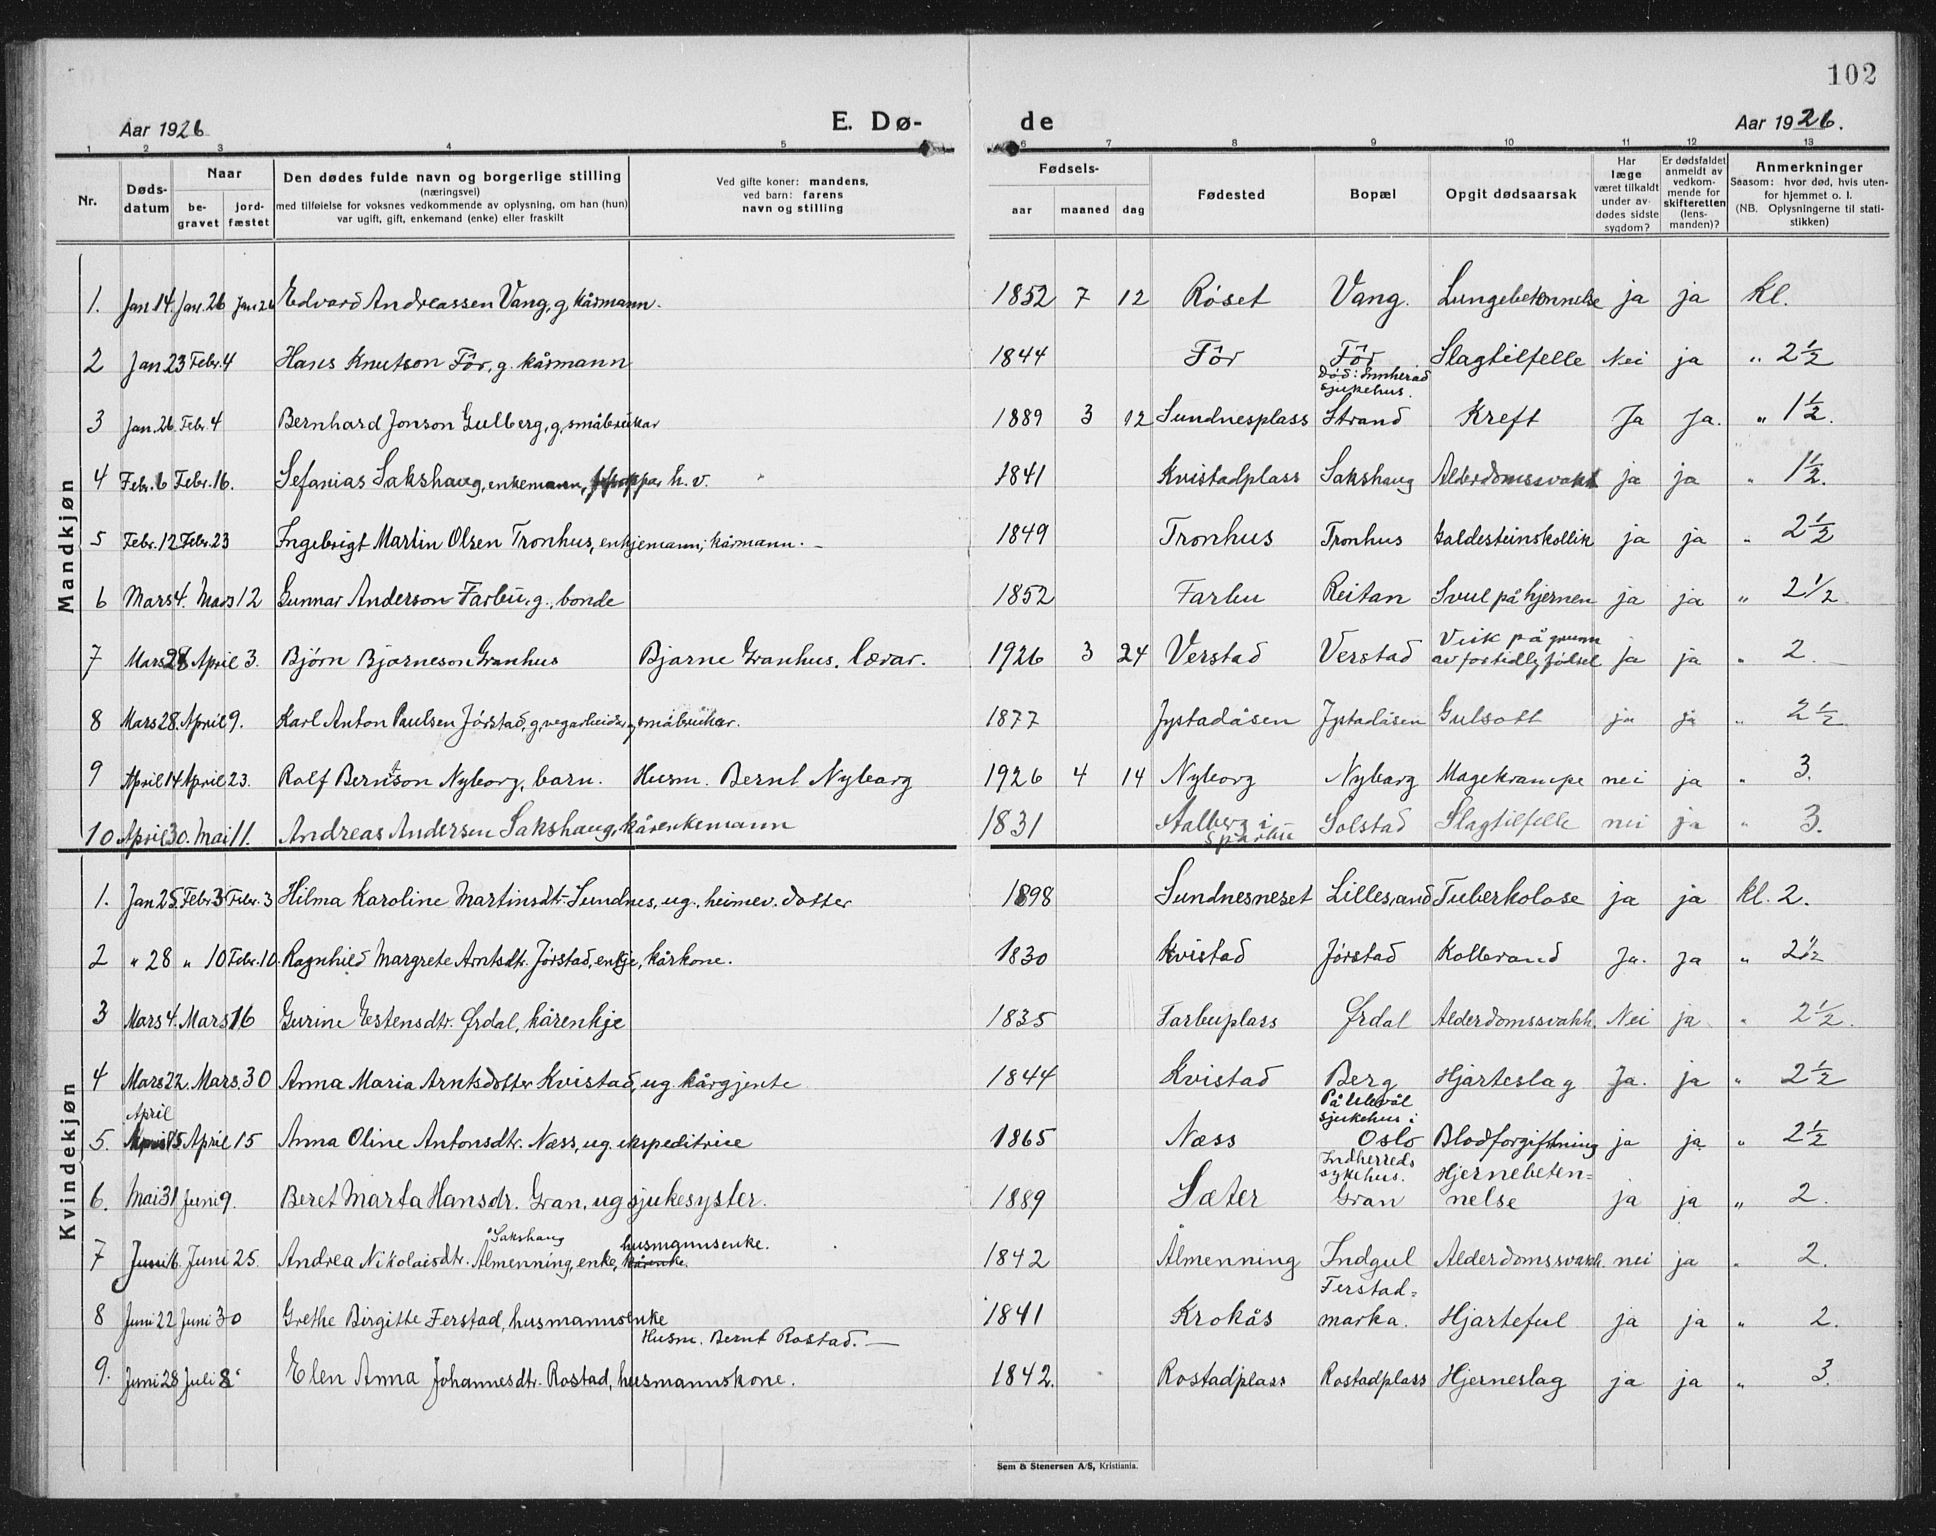 102
Aar 1926 E. Dø- de Aar 1926.
1 2 3 4 5 6 7 8 9 10 11 12 13
Nr. Døds-datum Naar be-gravet jord-fæstet Den dødes fulde navn og borgerlige stilling (næringsvei) med tilføielse for voksnes vedkommende av oplysning, om han (hun) var ugift, gift, enkemand (enke) eller fraskilt Ved gifte koner: mandens, ved barn: farens navn og stilling Fødsels- aar maaned dag Fødested Bopæl Opgit dødsaarsak Har læge været tilkaldt under av-dødes sidste sygdom? Er dødsfaldet anmeldt av vedkom-mende for skifteretten (lens-manden)? Anmerkninger Saasom: hvor død, hvis uten-for hjemmet o. l. (NB. Oplysningerne til stati-stikken)
Mandkjøn
1. Jan 14. Jan. 26 Jan 26 Edvard Andreassen Vang, g, kårmann. 1852 7 12 Røset Vang. Lungebetennelse ja ja Kl.
2 Jan 23 Febr. 4 Hans Knutson Før, g. kårmann 1844 Før Før Slagtilfelle Nei ja " 2 1/2
Død: Innherad
sjukehus.
3 Jan. 26. Febr. 4 Bernhard Jonson Gulberg, g, småbrukar 1889 3 12 Sundnesplass Strand Kreft Ja Ja. " 1 1/2.
4 Febr. 6 Febr. 16. Sefanias Sakshaug, enkemann, h. v. 1841 Kvistadplass Sakshaug Alderdomssvakk ja ja " 1 1/2.
5 Febr. 12 Febr. 23 Ingebrigt Martin Olsen Tronhus, enkjemann, kårmann. 1849 Tronhus Tronhus Galdesteinskollik ja ja " 2 1/2
6 Mars 4. Mars 12 Gunnar Anderson Farbu, g., bonde 1852 Farbu Reitan Svul på hjernen ja ja " 2 1/2
7 Mars 28 April 3. Bjørn Bjarneson Granhus Bjarne Granhus, lærar. 1926 3 24 Verstad Verstad Veik på grunn av for tidlig fødsel ja ja " 2
8 Mars 28. April 9. Karl Anton Paulsen Jørstad, g, vegarbeider, småbrukar. 1877 Jystadåsen Jystadåsen Gulsott ja ja " 2 1/2
9 April 14 April 23. Rolf Berntson Nyborg, barn. Husm. Bernt Nyborg 1926 4 14 Nyborg Nyborg Magekrampe nei ja " 3.
10 April 30. Mai 11. Andreas Andersen Sakshaug, kårenkemann 1831 Aalberg i Sparbu Solstad Slagtilfelle nei ja " 3.
Kvindekjøn
1. Jan 25. Febr 3 Febr. 3 Hilma Karoline Martinsdtr Sundnes, ug., heimev. dotter 1898 Sundnesneset Lillesand Tuberkolose ja ja kl. 2.
2 " 28 " 10 Febr. 10. Ragnhild Margrete Arntsdtr. Jørstad, enkje, kårkone. 1830 Kvistad Jørstad Kolbrand Ja. Ja " 2 1/2
3 Mars 4. Mars 16 Gurine Estensdtr. Ørdal, kårenkje 1835 Farbuplass Ørdal Alderdomssvakh. Nei ja " 2 1/2.
4 Mars 22. Mars. 30 Anna Maria Arntsdotter Kvistad, ug. kårgjente 1844 Kvistad Berg Hjarteslag Ja. ja " 2 1/2
April
5. 15 April 15 Anna Oline Antonsdtr. Næss, ug. ekspeditrice 1865 Næss På Ulevål sjukehus i Oslo Blodforgiftning ja ja " 2 1/2
6. Mai 31 Juni 9. Beret Marta Hansdr. Gran, ug sjukesyster. 1889 Sæter Indherreds sykehus. Gran Hjernebeten=nelse ja ja " 2.
Sakshaug husmannsenke.
7 Juni 16. Juni 25. Andrea Nikolaisdtr. Almenning, enke, kårenke. 1842 Ålmenning Indgul Alderdomssvakh. nei ja " 2.
8 Juni 22 Juni 30 Grethe Birgitte Ferstad, husmannsenke 1841 Krokås Ferstad=marka. Hjartefeil ja ja " 2.
Husm. Bernt Rostad.
9. Juni 28 Juli 8 Elen Anna Johannesdtr. Rostad, husmannskone. 1842. Rostadplass Rostadplass Hjerneslag ja ja " 3.
Sem & Stenersen A/S, Kristiania.